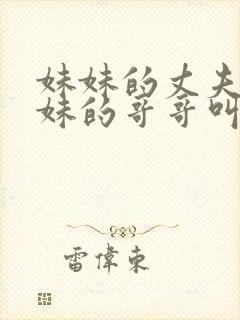 妹妹的丈夫
妹的哥哥叫
雷偉東